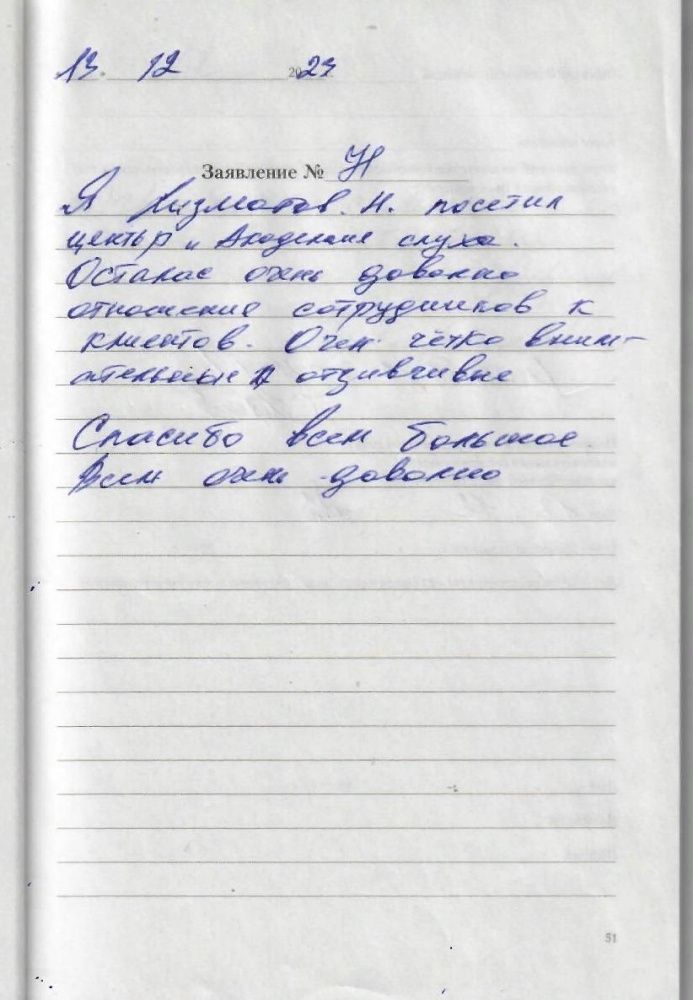 13. 12 2023
Заявление № Н
Я Хизматов. Н. посетил
центр „ Академие слуха.
Осталас очень даволно
отношение сотрудников к
клиентов. Очен чётко вним-
ательные и отзивчивые
Спасибо всем большое.
Всем очень даволно
51